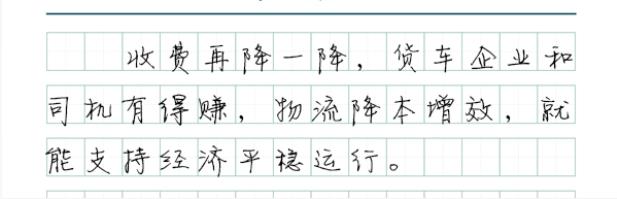 收费再降一降，货车企业和
司机有得赚，物流降本增效，就
能支持经济平稳运行。